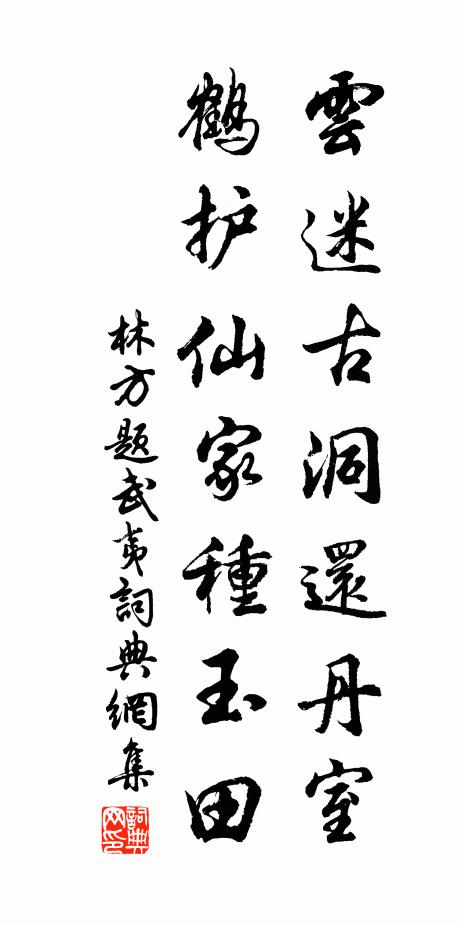 雲迷古洞還丹室
鶴护仙家種玉田
林方題武夷詞典網集
詞典网印